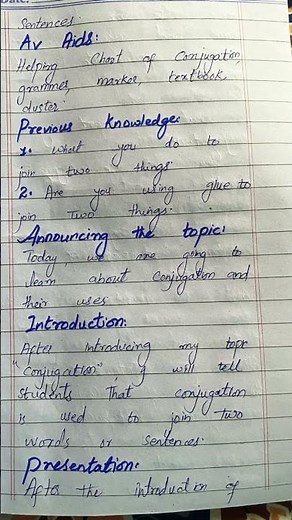 Date:
Sentences.
Av Aids:
Helping Chart of Conjugation,
grammer, marker, textbook,
duster.
Previous Knowledge:
1. what you do to
join two things.
2. Are you using glue to
join Two things.
Announcing the topic:
Today, we are going to
learn about Conjugation and
their uses
Introduction:
After Introducing my topic
"Conjugation", I will tell
Students That conjugation
is used to join Two
words or Sentences.
Presentation:
After the introduction of